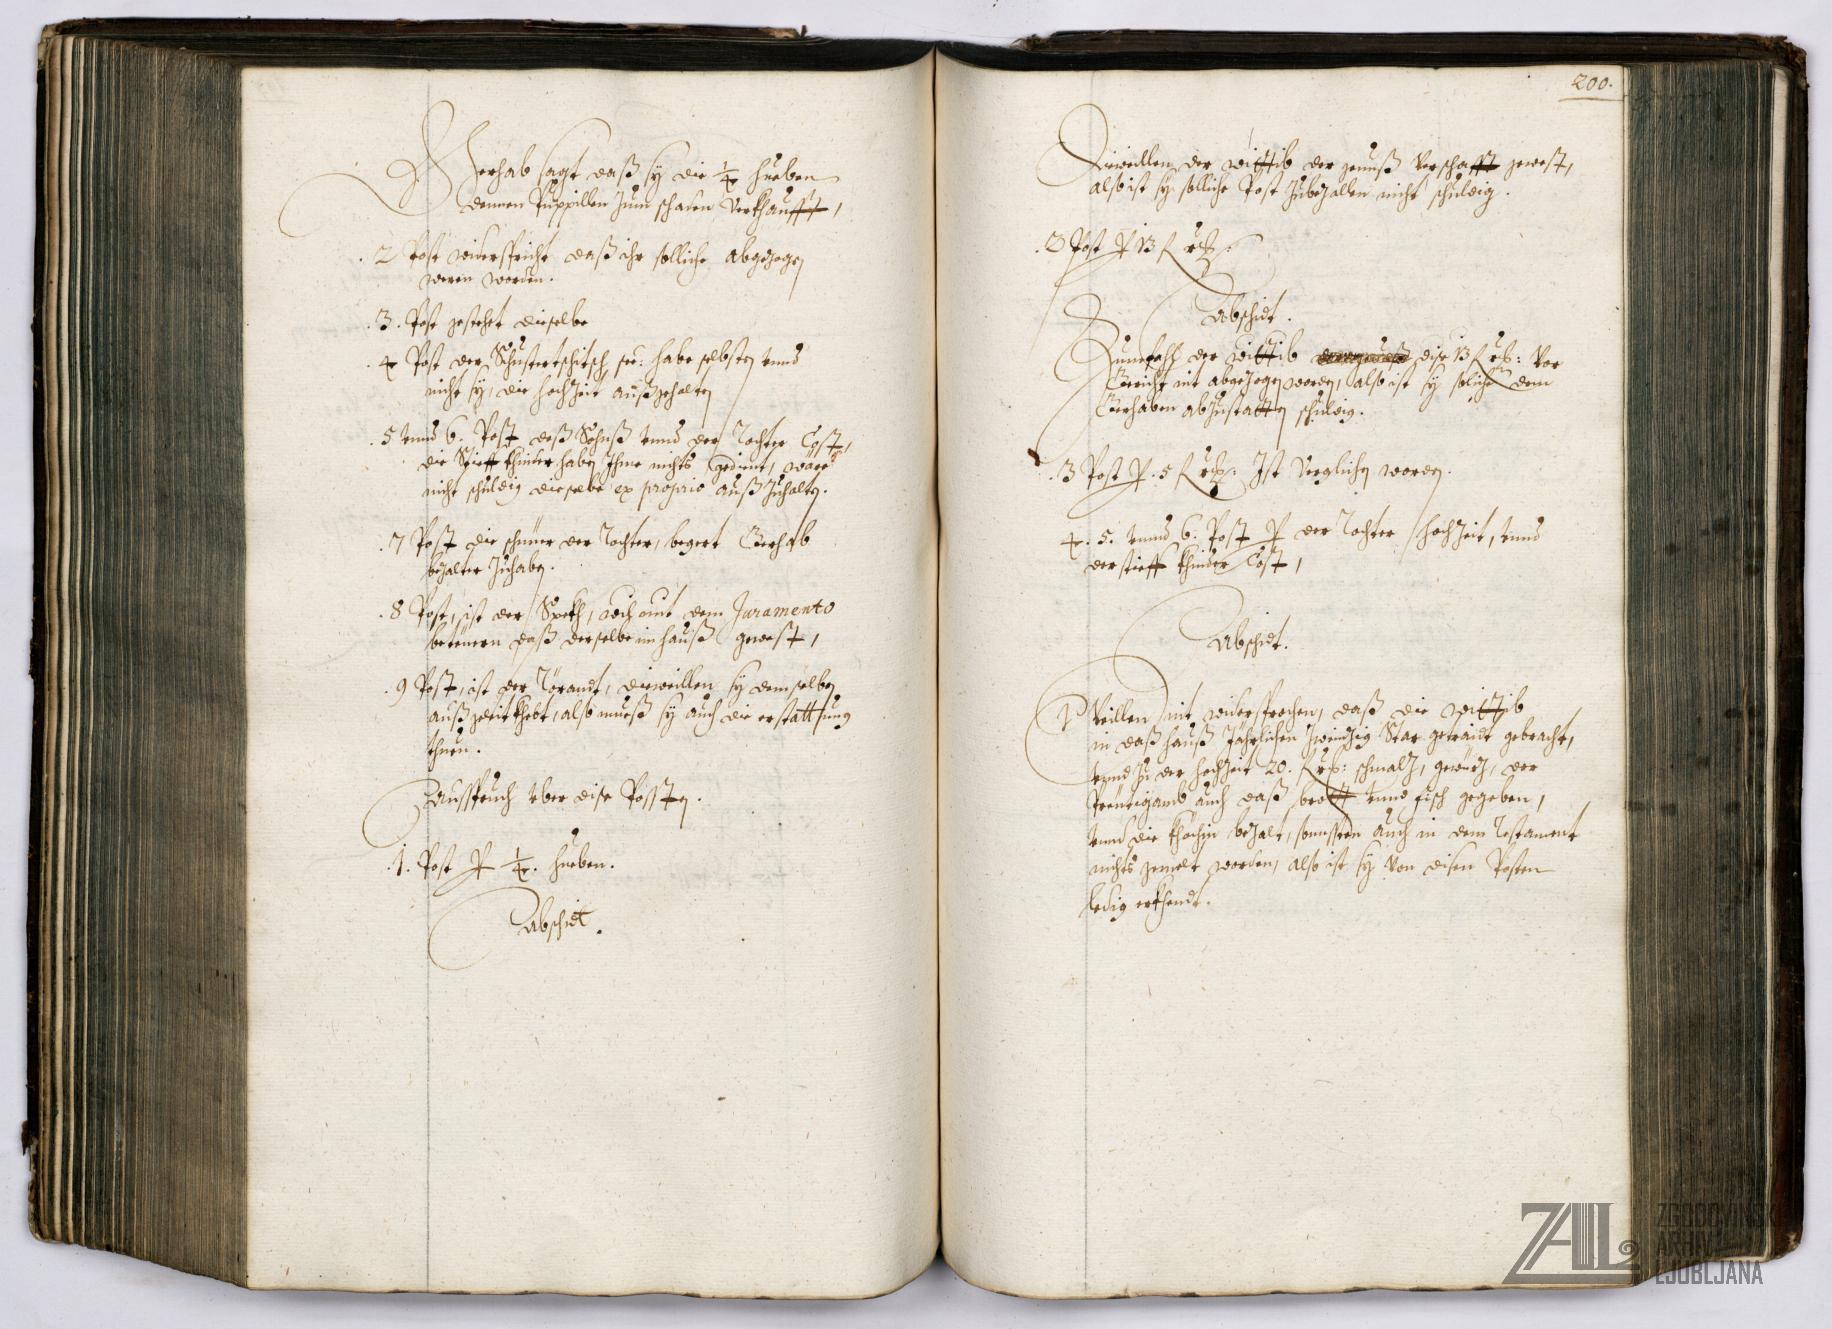 Gerhab sagt daß sy die 1/4 hueben
dennen Puppillen zum schaden verkhaufft,
.2 Post widerspricht daß ihr solliche abgezogen
weren worden.
.3. Post gestehet dieselbe
.4 Post der Schustertschitsch see: habe selbsten vnnd
nicht sy, die hochzeit außgehalten
.5 vnnd 6. Post deß Sohnß vnnd der Tochter Cost,
die Stieff khinder haben Ihme nichts gedient, wäre
nicht schuldig dieselbe ex proprio außzuhalten.
.7 Post die schnüer der Tochter, begert Gerhab
bezalter zuhaben.
.8 Post, ist der Spekh, soll mit dem Juramento
beteüern daß derselbe im hauß gewest,
.9 Post, ist der Törandt, dieweillen sy demselben
auß zeit khebt, also mueß sy auch die erstattung
thuen.
Ausspruch vber dise Possten.
.1. Post P 1/4. hueben.
Abschidt.
200.
Dieweillen der wittib der genuß verschafft gewest,
also ist sy solliche Post zubezallen nicht schuldig.
.2 Post P 13 f
Abschidt.
Zumahl der Wittib dise 13 f vor
Gericht nit abgezogen worden, also ist sy soliche dem
Gerhaben abzustatten schuldig.
.3 Post P. 5 f Ist verglichen worden.
4. 5. vnnd 6. Post P der Tochter hochzeit, vnnd
der stieff khinder Cost,
Abschidt.
Weillen nit widersprochen, daß die wittib
in daß hauß Jährlichen zweinzig Star getraidt gebracht,
vnnd zu der hochzeit 20. f schmalz, gewürz, der
Preütigamb auch daß brott vnnd fisch gegeben,
vnnd die khöchin bezalt, sonnsten auch in dem Testament
nichts gemelt worden, also ist sy von disen Posten
ledig erkhendt.
ZAL
ZGODOVINSKI
ARHIV
LJUBLJANA